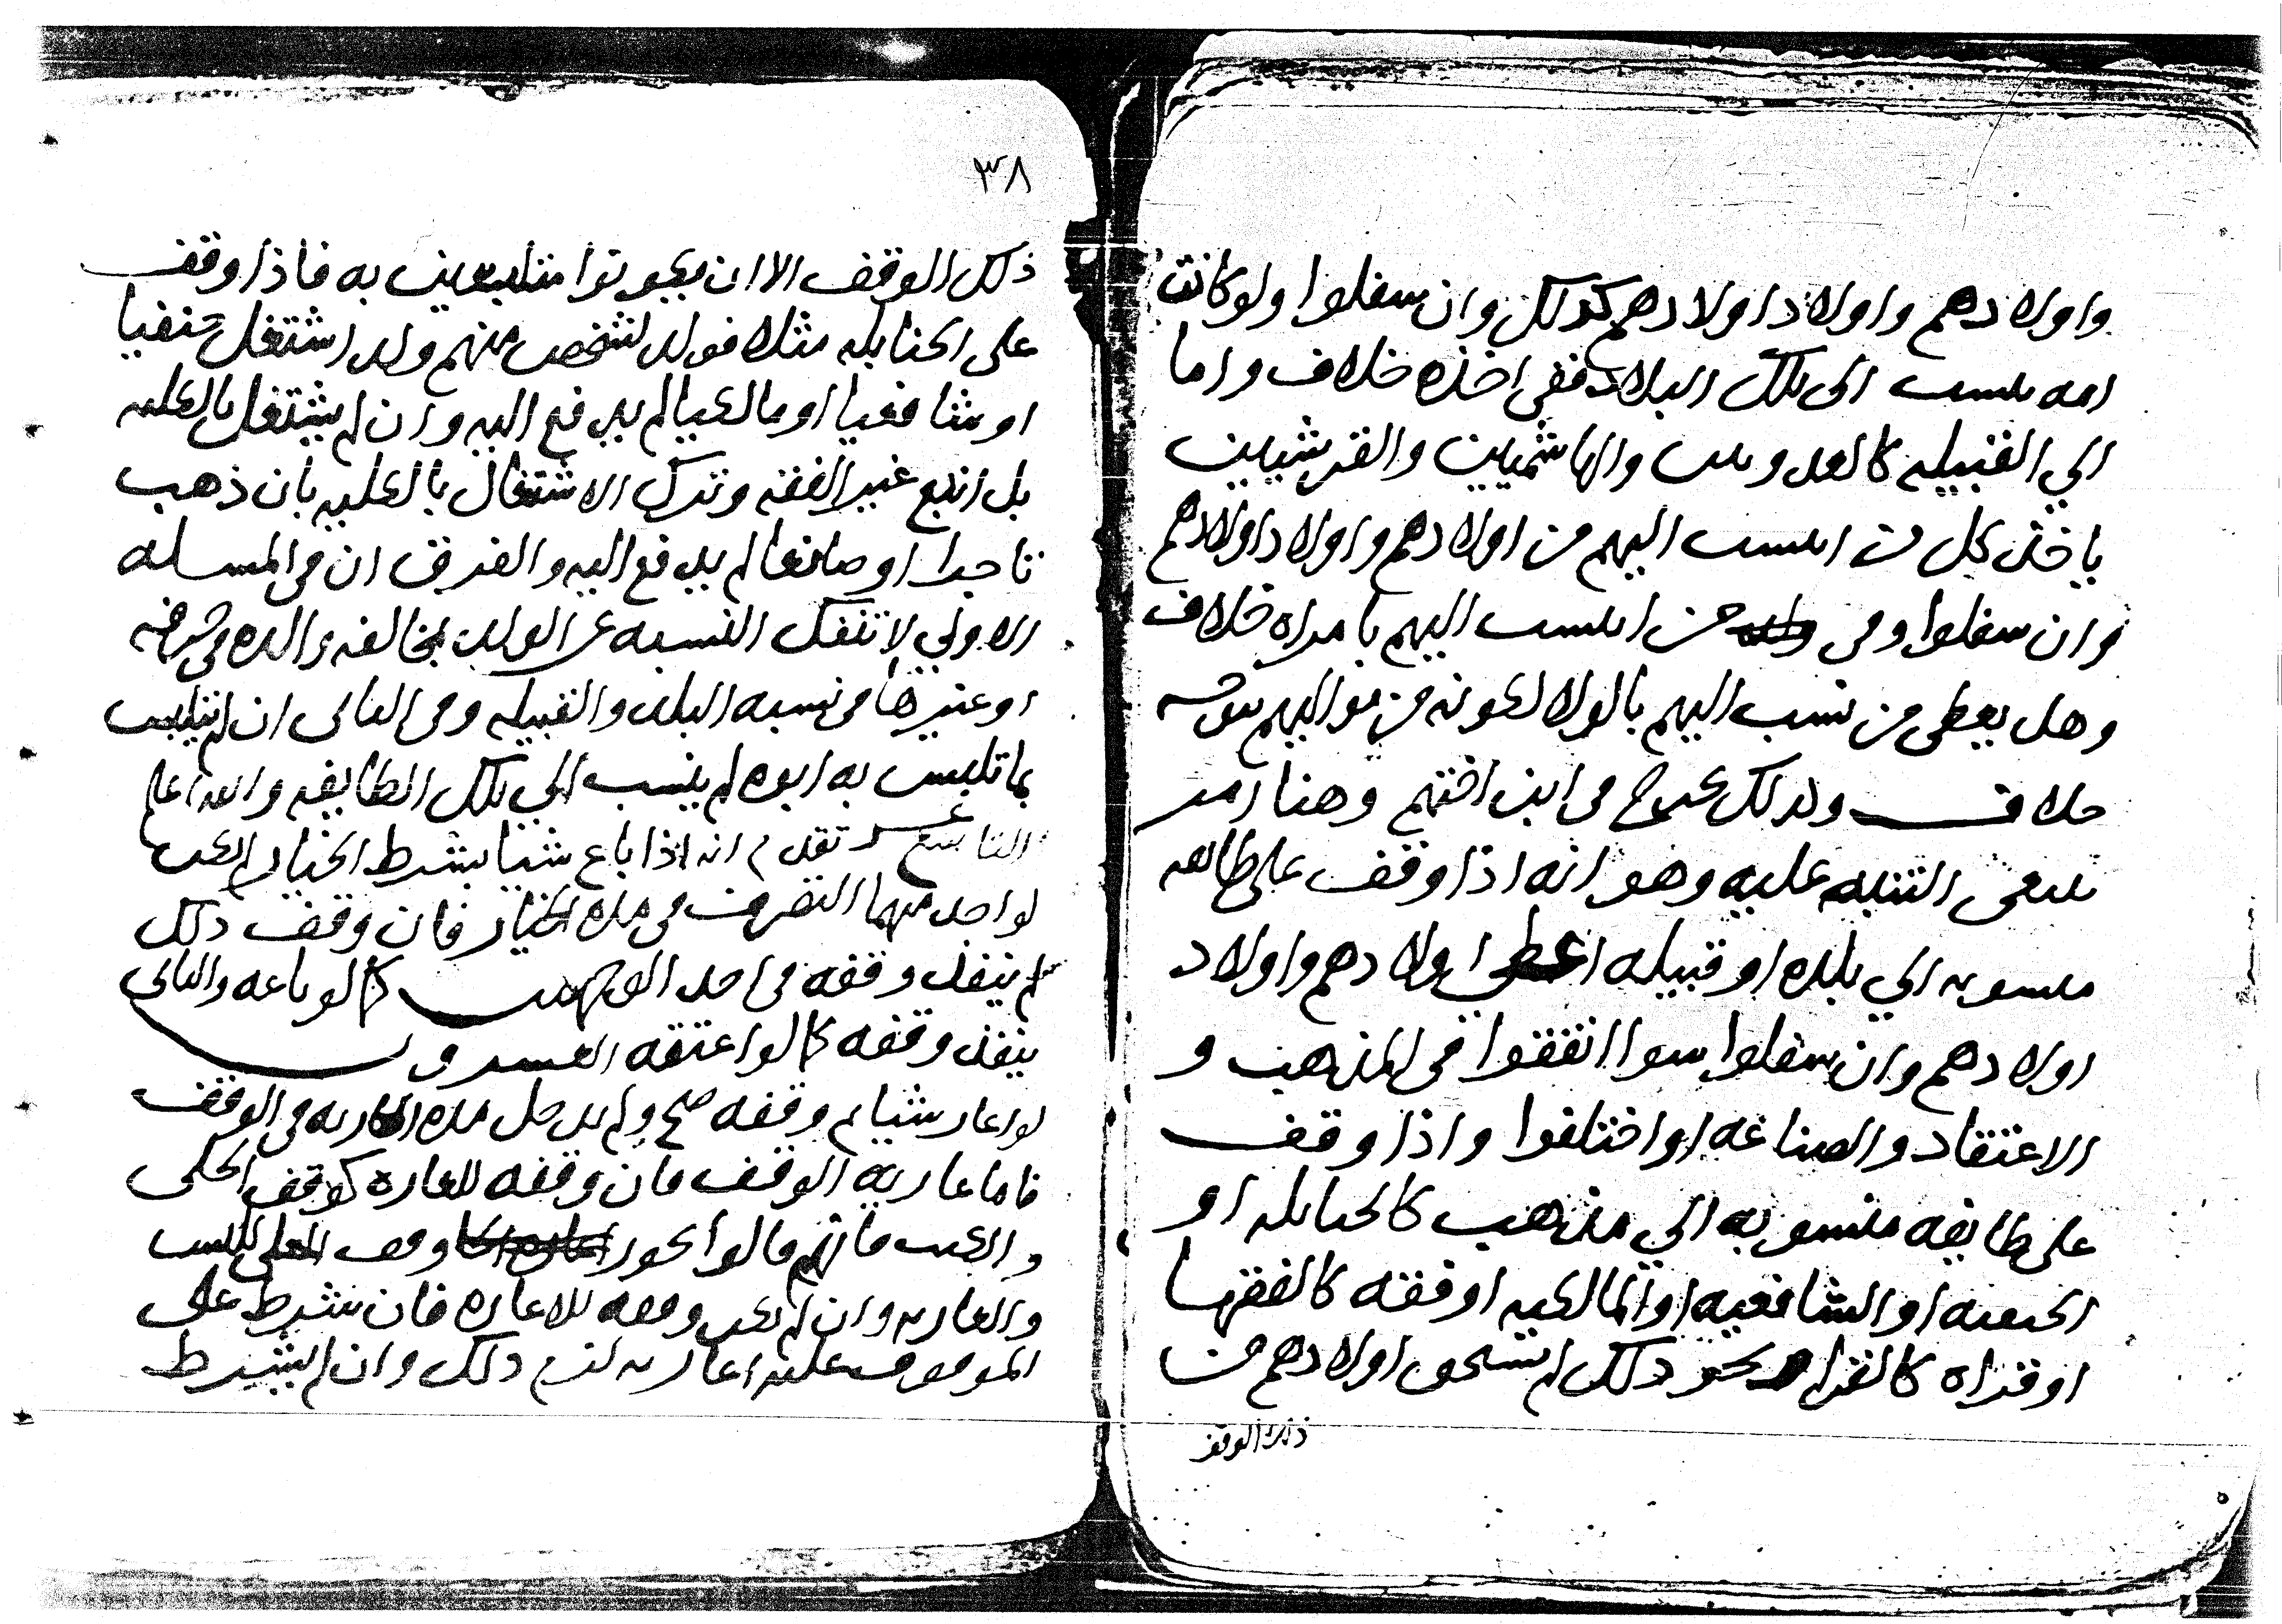 واولادهم واولاد اولادهم كذلك وان سفلوا ولو كانت
امه تنسب الى تلك البلاد ففي اخذه خلاف واما
الي القبيله كالعدويين والهاشميين والقرشيين
ياخذ كل من انتسب اليهم من اولادهم واولاد اولادهم
وان سفلوا وفي من انتسب اليهم بامراه خلاف
وهل يعطى من نسب اليهم بالولا لكونه من مواليهم
خلاف ولذلك يخرج في ابن اختهم وهنا امر
ينبغى التنبه عليه وهو انه اذا وقف على طائفه
منسوبه الي بلده او قبيله اعطي اولادهم واولاد
اولادهم وان سفلوا سوا اتفقوا في المذهب و
الاعتقاد والصناعه او اختلفوا واذا وقف
على طايفه منسوبه الي مذهب كالحنابله او
الحنفيه او الشافعيه او المالكيه او فقه كالفقها
او قراه كالقرا ونحو ذلك لم يستحق اولادهم من
ذلك الوقف
٣٨
ذلك الوقف الا ان يكونوا متلبسين به فاذا وقف
على الحنابله مثلا فولد لشخص منهم ولد اشتغل حنفيا
او شافعيا او مالكيا لم يدفع اليه وان لم يشتغل بالكليه
بل اتبع غير الفقه وترك الاشتغال بالكليه بان ذهب
تاجرا او صانعا لم يدفع اليه والفرق ان في المسله
الاولي لا تنفك النسبه عن الولد بمخالفه والده في حرفه
او غيرها من نسبه البلد والقبيله وفي الثاني ان لم يتلبس
بما تلبس به ابوه لم ينسب الي تلك الطايفه والله اعلم
التاسع عشر تقدم انه اذا باع شيا بشرط الخيار لم يكن
لواحد منهما التصرف في مده الخيار فان وقف ذلك
لم ينفذ وقفه في احد الوجهين كما لو باعه والثاني
ينفذ وقفه كما لو اعتقه العشرون
لو اعار شيا ثم وقفه صح ولم يدخل مده العاريه في الوقف
فاما عاريه الوقف فان وقفه للعاره كوقف الحلى
والكتب فانهم قالوا يجوز وقف الحلي للبس
والعاريه وان لم يكن وقفه للاعاره فان شرط على
الموقوف عليه اعاريه لزم ذلك وان لم يشرط